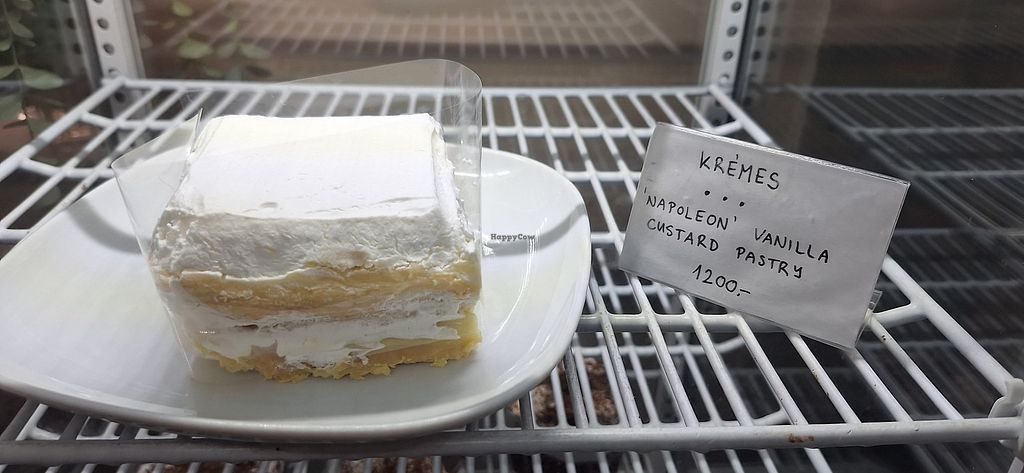 KRÉMES
...
'NAPOLEON' VANILLA
CUSTARD PASTRY
1200.-
HappyCow